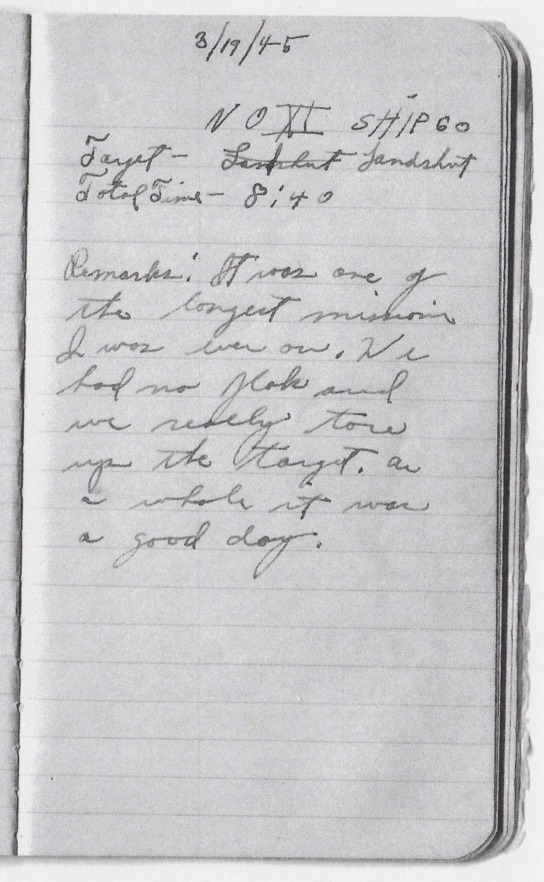 3/19/45
NO XI SHIP 60
Target - Landshut Landshut
Total Time - 8:40
Remarks: It was one of
the longest missions
I was ever on. We
had no flak and
we really tore
up the target. as
a whole it was
a good day.